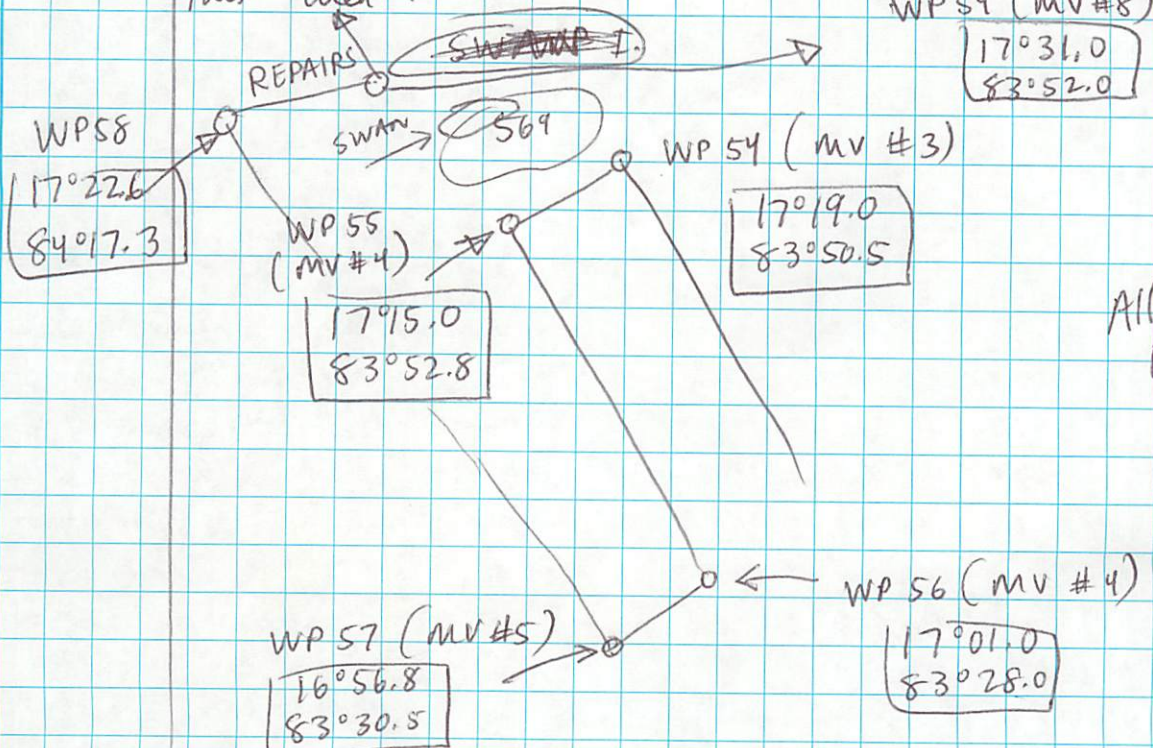 WP 59 (MV #8)
17°31.0
83°52.0
REPAIRS
SWAMP I.
SWAN
WP58
17°22.6
84°17.3
WP 54 (MV #3)
17°19.0
83°50.5
WP 55
(MV #4)
17°15.0
83°52.8
All
WP 56 (MV #4)
17°01.0
83°28.0
WP 57 (MV #5)
16°56.8
83°30.5